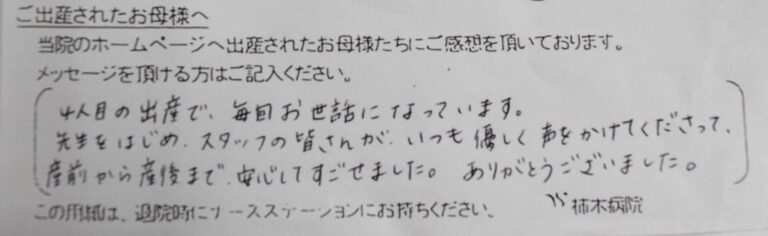 ご出産されたお母様へ
当院のホームページへ出産されたお母様たちにご感想を頂いております。
メッセージを頂ける方はご記入ください。
4人目の出産で、毎回お世話になっています。
先生をはじめ、スタッフの皆さんが、いつも優しく声をかけてくださって、
産前から産後まで、安心してすごせました。 ありがとうございました。
この用紙は、退院時にナースステーションにお持ちください。 柿木病院